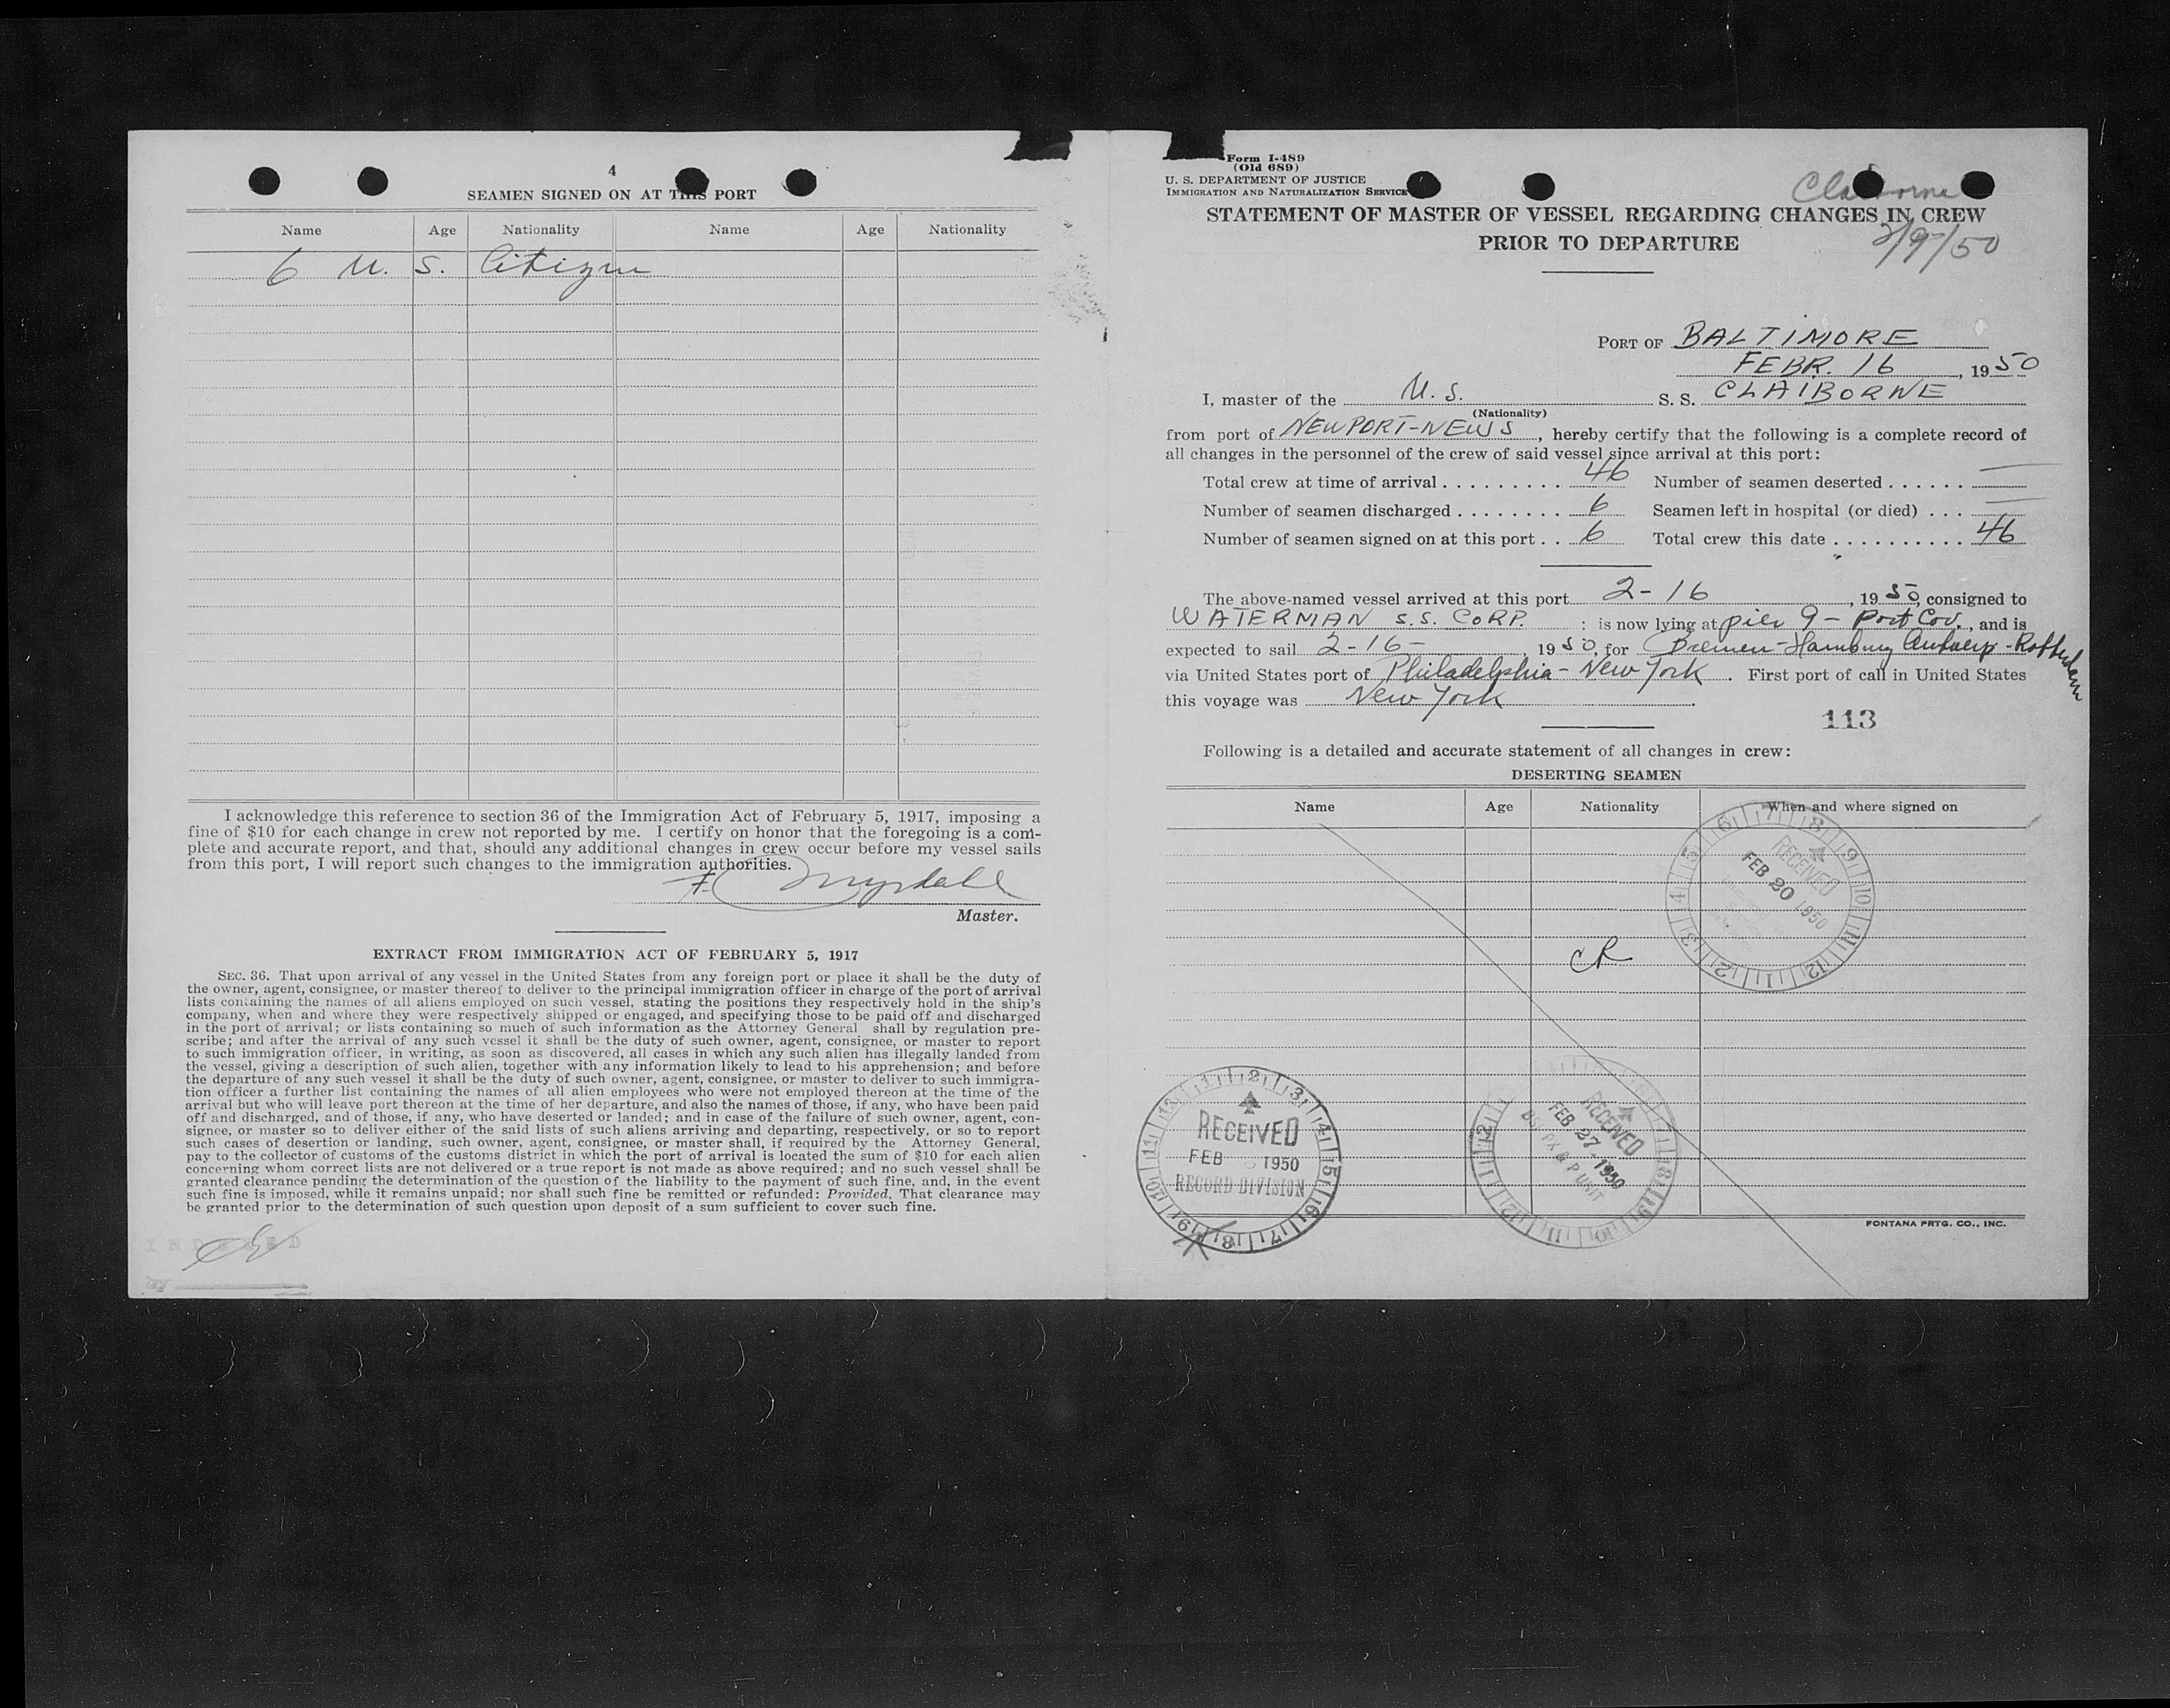 4
SEAMEN SIGNED ON AT THIS PORT
Name Age Nationality Name Age Nationality
6 U. S. Citizen
I acknowledge this reference to section 36 of the Immigration Act of February 5, 1917, imposing a
fine of $10 for each change in crew not reported by me. I certify on honor that the foregoing is a com-
plete and accurate report, and that, should any additional changes in crew occur before my vessel sails
from this port, I will report such changes to the immigration authorities.
Master.
EXTRACT FROM IMMIGRATION ACT OF FEBRUARY 5, 1917
SEC. 36. That upon arrival of any vessel in the United States from any foreign port or place it shall be the duty of
the owner, agent, consignee, or master thereof to deliver to the principal immigration officer in charge of the port of arrival
lists containing the names of all aliens employed on such vessel, stating the positions they respectively hold in the ship's
company, when and where they were respectively shipped or engaged, and specifying those to be paid off and discharged
in the port of arrival; or lists containing so much of such information as the Attorney General shall by regulation pre-
scribe; and after the arrival of any such vessel it shall be the duty of such owner, agent, consignee, or master to report
to such immigration officer, in writing, as soon as discovered, all cases in which any such alien has illegally landed from
the vessel, giving a description of such alien, together with any information likely to lead to his apprehension; and before
the departure of any such vessel it shall be the duty of such owner, agent, consignee, or master to deliver to such immigra-
tion officer a further list containing the names of all alien employees who were not employed thereon at the time of the
arrival but who will leave port thereon at the time of her departure, and also the names of those, if any, who have been paid
off and discharged, and of those, if any, who have deserted or landed; and in case of the failure of such owner, agent, con-
signee, or master so to deliver either of the said lists of such aliens arriving and departing, respectively, or so to report
such cases of desertion or landing, such owner, agent, consignee, or master shall, if required by the Attorney General,
pay to the collector of customs of the customs district in which the port of arrival is located the sum of $10 for each alien
concerning whom correct lists are not delivered or a true report is not made as above required; and no such vessel shall be
granted clearance pending the determination of the question of the liability to the payment of such fine, and, in the event
such fine is imposed, while it remains unpaid; nor shall such fine be remitted or refunded: Provided, That clearance may
be granted prior to the determination of such question upon deposit of a sum sufficient to cover such fine.
INDEXED
Form I-489
(Old 689)
U. S. DEPARTMENT OF JUSTICE
IMMIGRATION AND NATURALIZATION SERVICE
Claiborne
STATEMENT OF MASTER OF VESSEL REGARDING CHANGES IN CREW
PRIOR TO DEPARTURE
2/9/50
PORT OF BALTIMORE
FEBR. 16, 1950
I, master of the U. S. S. S. CLAIBORNE
(Nationality)
from port of NEWPORT-NEWS, hereby certify that the following is a complete record of
all changes in the personnel of the crew of said vessel since arrival at this port:
Total crew at time of arrival . . . . . . . . . 46 Number of seamen deserted . . . . . . —
Number of seamen discharged . . . . . . . . 6 Seamen left in hospital (or died) . . . —
Number of seamen signed on at this port . . 6 Total crew this date . . . . . . . . . . 46
The above-named vessel arrived at this port 2-16, 1950, consigned to
WATERMAN S.S. CORP. : is now lying at pier 9 - Port Cov., and is
expected to sail 2-16-, 1950, for Bremen-Hamburg Antwerp-Rotterdam
via United States port of Philadelphia - New York. First port of call in United States
this voyage was New York
113
Following is a detailed and accurate statement of all changes in crew:
DESERTING SEAMEN
Name Age Nationality When and where signed on
RECEIVED
FEB 20 1950
CR
RECEIVED
FEB 1950
RECORD DIVISION
RECEIVED
FEB 27 1950
FONTANA PRTG. CO., INC.